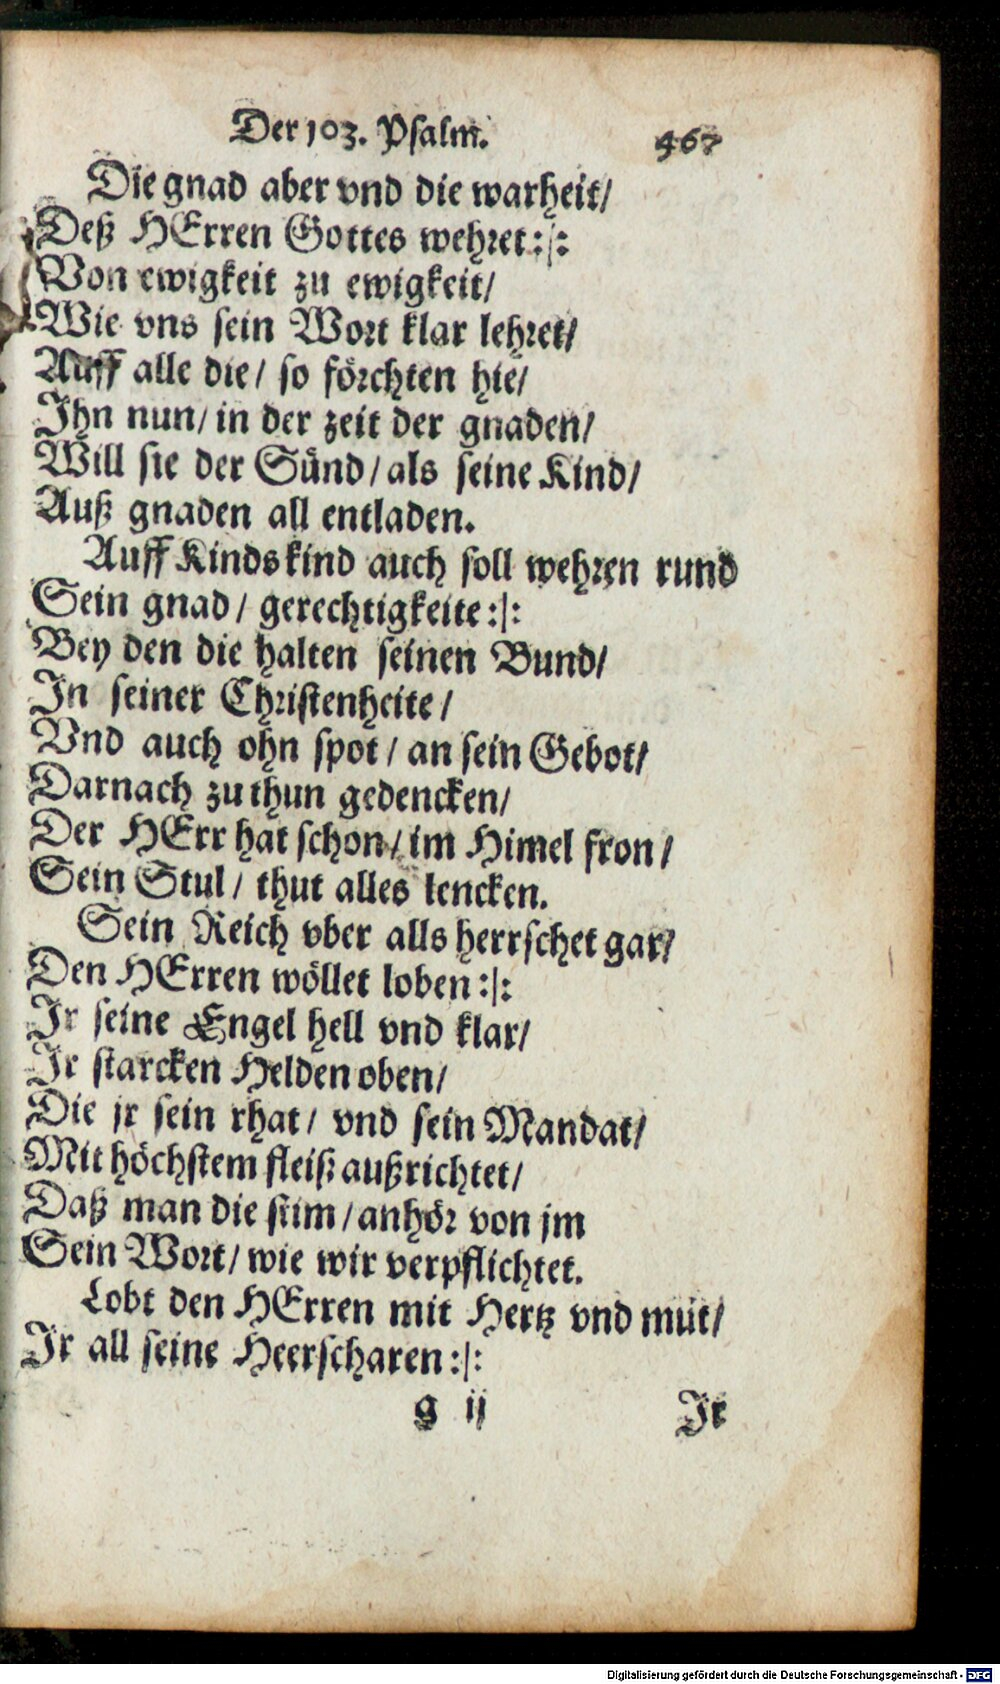 Der 103. Psalm. 467
Die gnad aber vnd die warheit/
Deß HErren Gottes wehret :|:
Von ewigkeit zu ewigkeit/
Wie vns sein Wort klar lehret/
Auff alle die/ so förchten hie/
Ihn nun/ in der zeit der gnaden/
Will sie der Sünd/ als seine Kind/
Auß gnaden all entladen.
Auff Kindskind auch soll wehren rund
Sein gnad/ gerechtigkeite :|:
Bey den die halten seinen Bund/
In seiner Christenheite/
Vnd auch ohn spot/ an sein Gebot/
Darnach zu thun gedencken/
Der HErr hat schon/ im Himel fron/
Sein Stul/ thut alles lencken.
Sein Reich vber alls herrschet gar/
Den HErren wöllet loben :|:
Ir seine Engel hell vnd klar/
Ir starcken Helden oben/
Die jr sein rhat/ vnd sein Mandat/
Mit höchstem fleiß außrichtet/
Daß man die stim/ anhör von jm
Sein Wort/ wie wir verpflichtet.
Lobt den HErren mit Hertz vnd müt/
Ir all seine Heerscharen :|:
g ij Ir
Digitalisierung gefördert durch die Deutsche Forschungsgemeinschaft - DFG